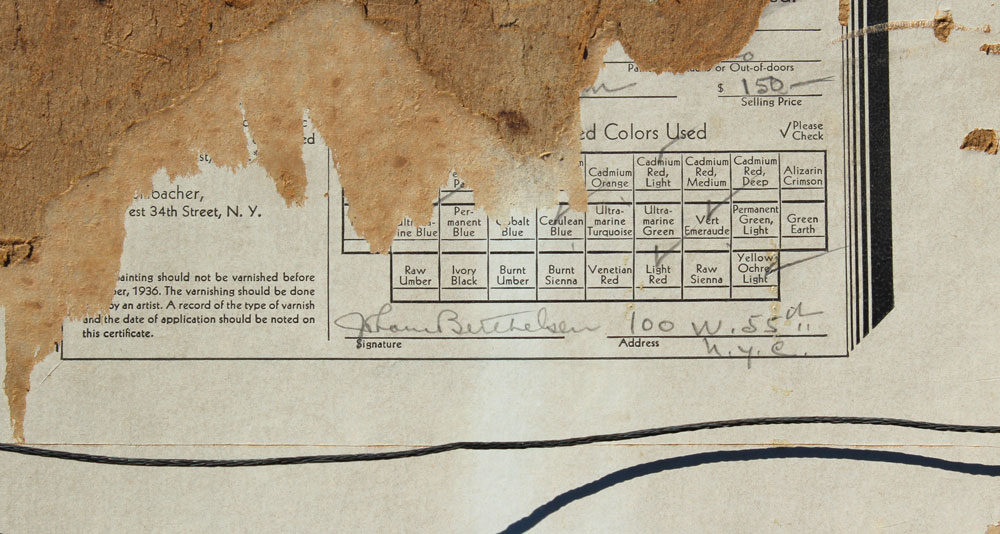 or Out-of-doors
$ 150–
Selling Price
Colors Used
✓Please
Check
est,
est 34th Street, N. Y.
Cadmium
Orange
Cadmium
Red,
Light
Cadmium
Red,
Medium
Cadmium
Red,
Deep
Alizarin
Crimson
ine Blue
Per-
manent
Blue
Cobalt
Blue
Cerulean
Blue
Ultra-
marine
Turquoise
Ultra-
marine
Green
Vert
Emeraude
Permanent
Green,
Light
Green
Earth
Raw
Umber
Ivory
Black
Burnt
Umber
Burnt
Sienna
Venetian
Red
Light
Red
Raw
Sienna
Yellow
Ochre
Light
ainting should not be varnished before
er, 1936. The varnishing should be done
by an artist. A record of the type of varnish
and the date of application should be noted on
this certificate.
Johann Berthelsen
Signature
100 W. 55th
Address
N.Y.C.